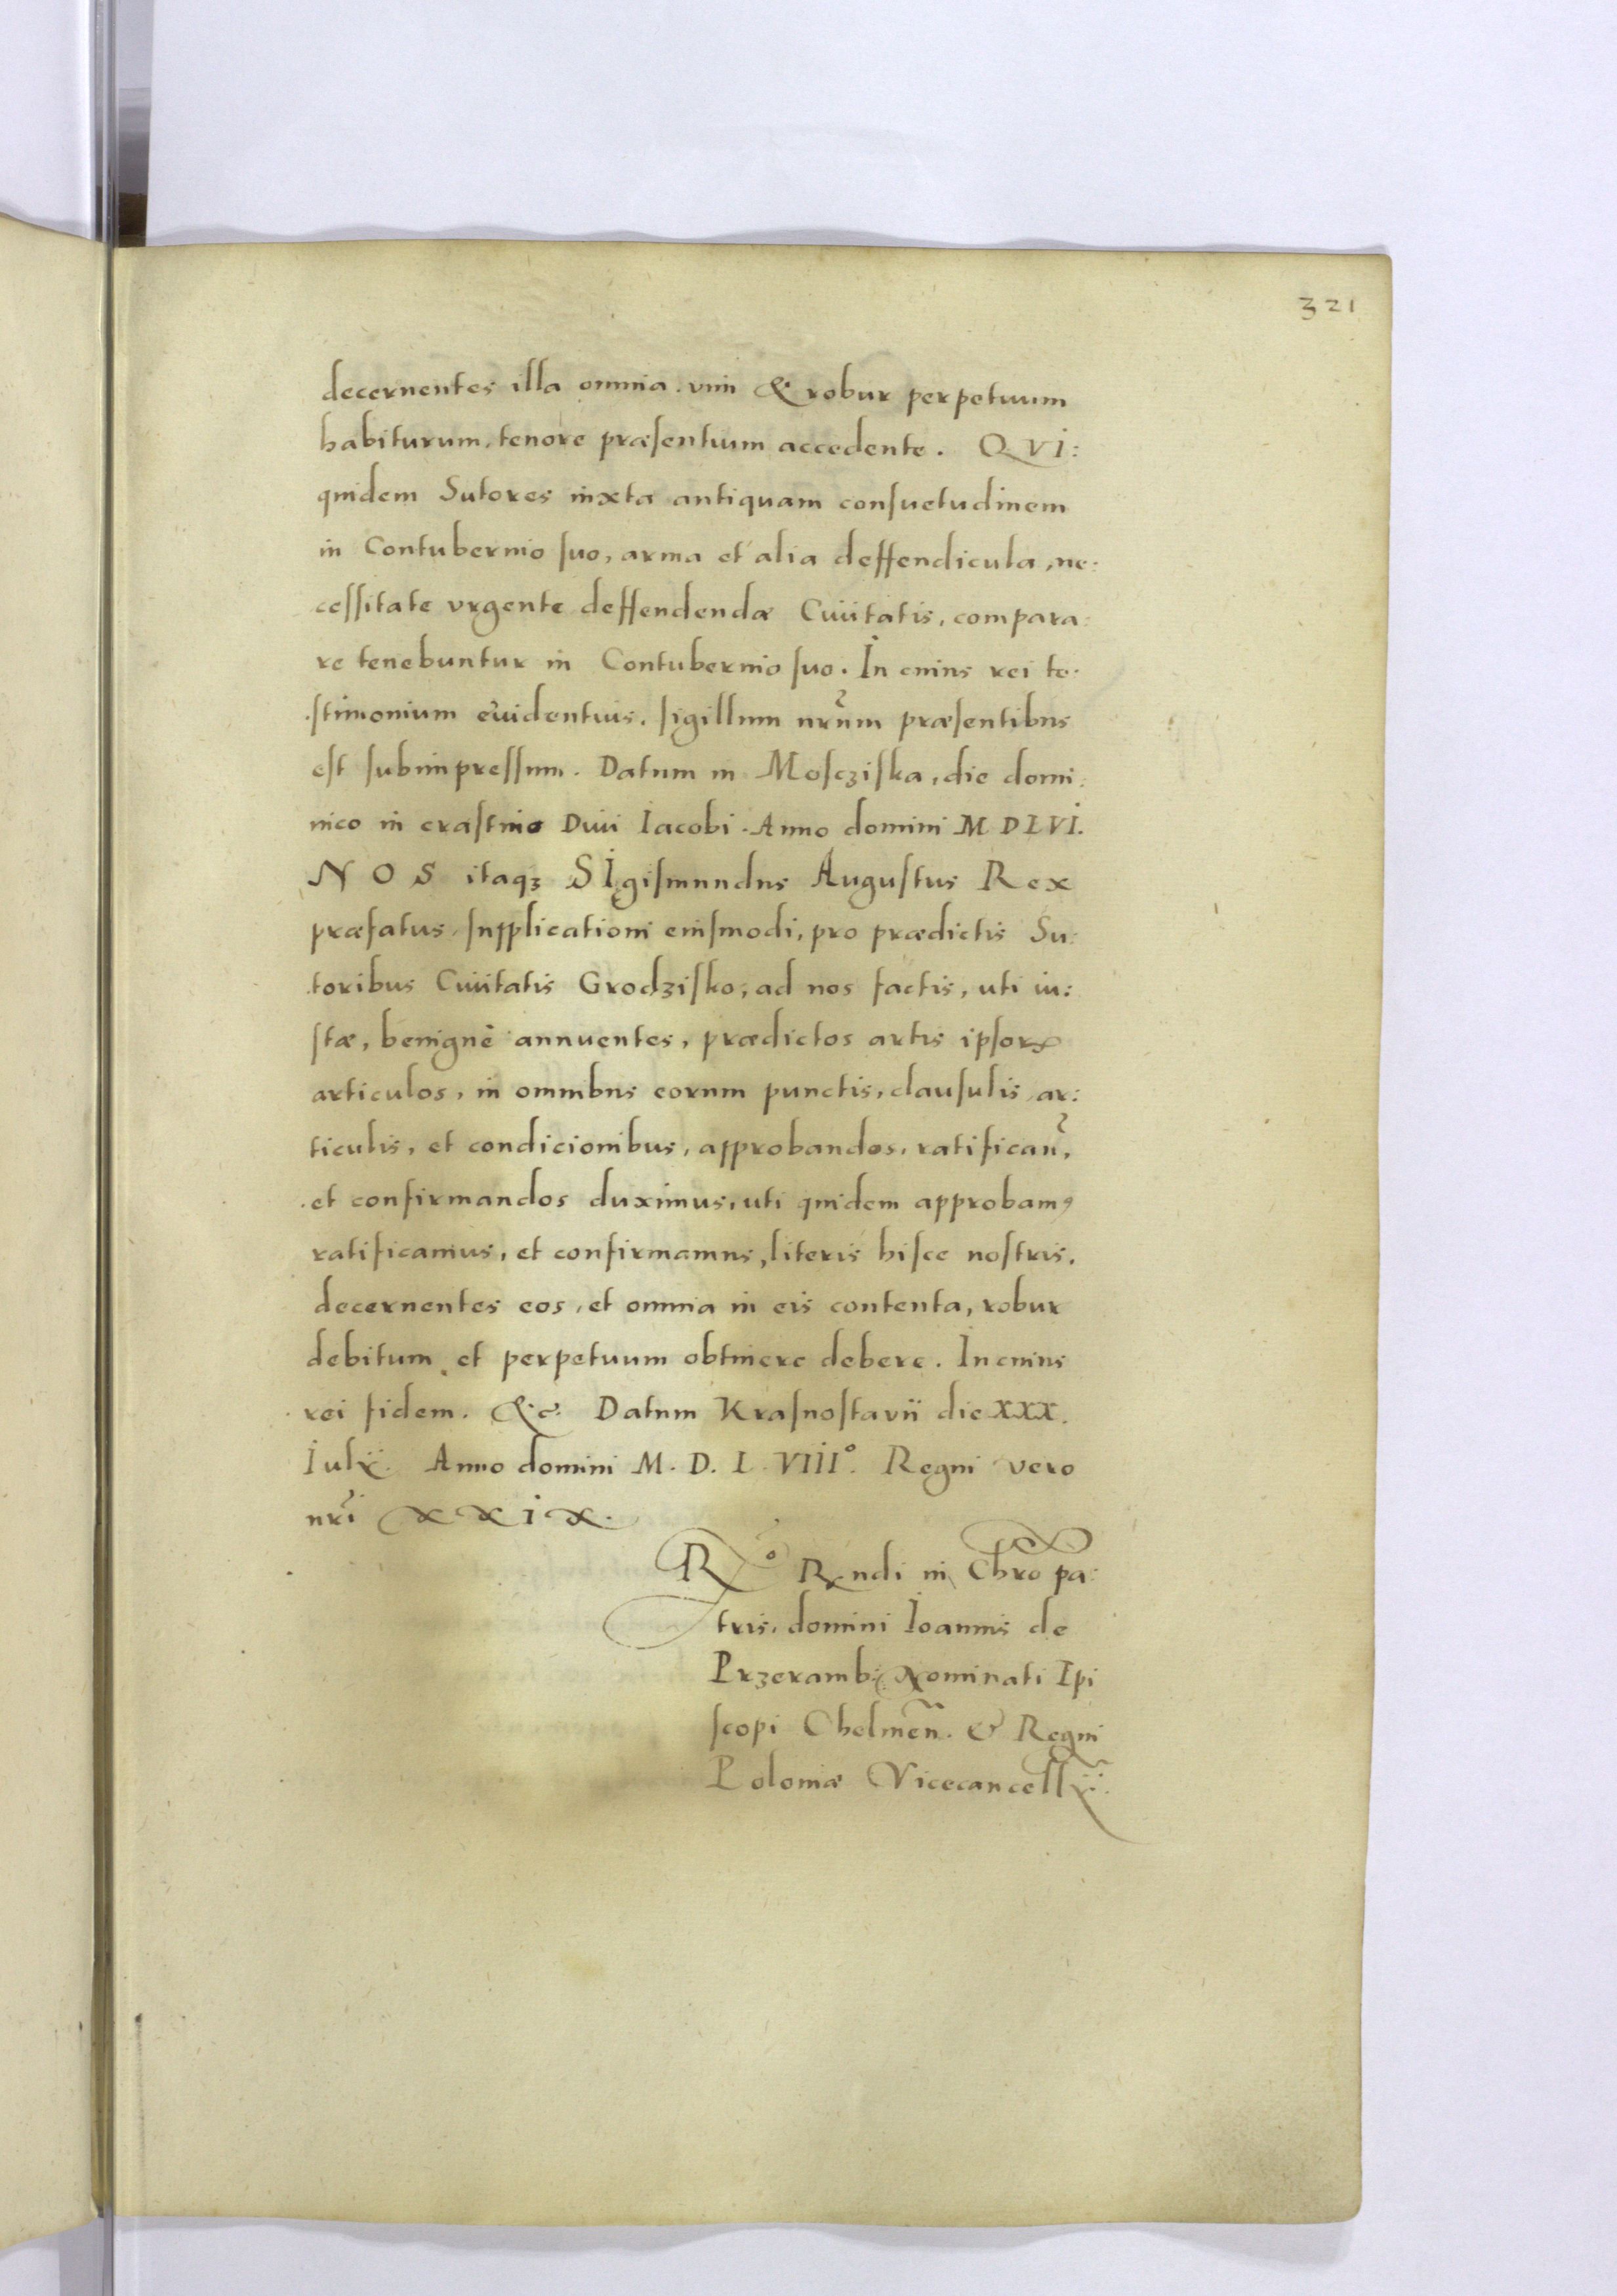 321
decernentes illa omnia vim & robur perpetuum
habiturum, tenore præsentium accedente. QVI:
quidem Sutores iuxta antiquam consuetudinem
in Contubernio suo, arma et alia deffendicula, ne:
cessitate vrgente deffendendæ Ciuitatis, compara:
re tenebuntur in Contubernio suo. In cuius rei te:
stimonium euidentius, sigillum nr̃um præsentibus
est subimpressum. Datum in Mosciska, die domi:
nico in crastino Diui Iacobi. Anno domini M D L VI.
NOS itaqꝫ SIgismundus Augustus Rex
præfatus, supplicationi eiusmodi, pro prædictis Su:
toribus Ciuitatis Grodzisko, ad nos factis, uti iu:
stæ, benignè annuentes, prædictos artis ipsorꝝ
articulos, in omnibus eorum punctis, clausulis, ar:
ticulis, et condicionibus, approbandos, ratifican̄,
et confirmandos duximus, uti quidem approbamꝰ
ratificamus, et confirmamus, literis hisce nostris,
decernentes eos, et omnia in eis contenta, robur
debitum et perpetuum obtinere debere. In cuius
rei fidem. &c. Datum Krasnostavii die XXX.
Iulÿ. Anno domini M. D. L. VIII°. Regni vero
nr̃i XXIX.
R° Rndi in Chro pa:
tris, domini Ioannis de
Przeramb: Nominati Ipi
scopi Chelmen̄. & Regni
Poloniæ Vicecancellÿ.